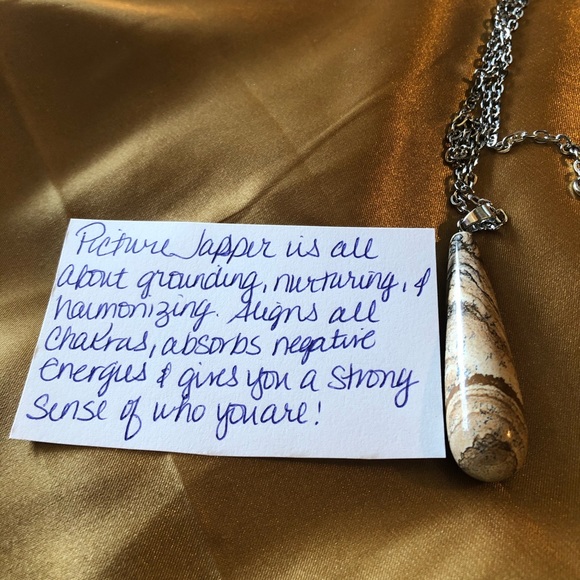 Picture Japper is all
about grounding, nurturing, &
harmonizing. Aligns all
chakras, absorbs negative
energies & gives you a strong
sense of who you are!